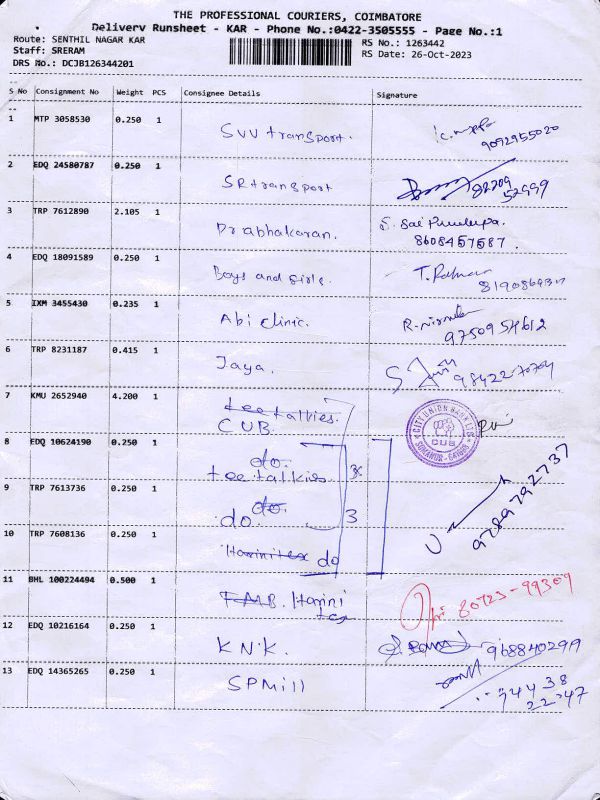 THE PROFESSIONAL COURIERS, COIMBATORE
Delivery Runsheet - KAR - Phone No.:0422-3505555 - Page No.:1
Route: SENTHIL NAGAR KAR
Staff: SRERAM
DRS No.: DCJB126344201
RS No.: 1263442
RS Date: 26-Oct-2023
S No Consignment No Weight PCS Consignee Details Signature
1 MTP 3058530 0.250 1 SVV transport. 9092955020
2 EDQ 24580787 0.250 1 SR transport 88709 52999
3 TRP 7612890 2.105 1 Prabhakaran. S. Sai
8608457587.
4 EDQ 18091589 0.250 1 Boys and girls.
5 IXM 3455430 0.235 1 Abi clinic. R.
9750954612
6 TRP 8231187 0.415 1 Jaya. 98422-70704
7 KMU 2652940 4.200 1 teetalkies.
CUB.
CITY UNION BANK LTD.
CUB
8 EDQ 10624190 0.250 1 do.
teetalkies
9789792737
9 TRP 7613736 0.250 1 do.
do. 3
10 TRP 7608136 0.250 1 Harinitex do
11 BHL 100224494 0.500 1 T.M.B. Harini
tex
80723-99309
12 EDQ 10216164 0.250 1 KNK.
13 EDQ 14365265 0.250 1 SPMill
74438
22247